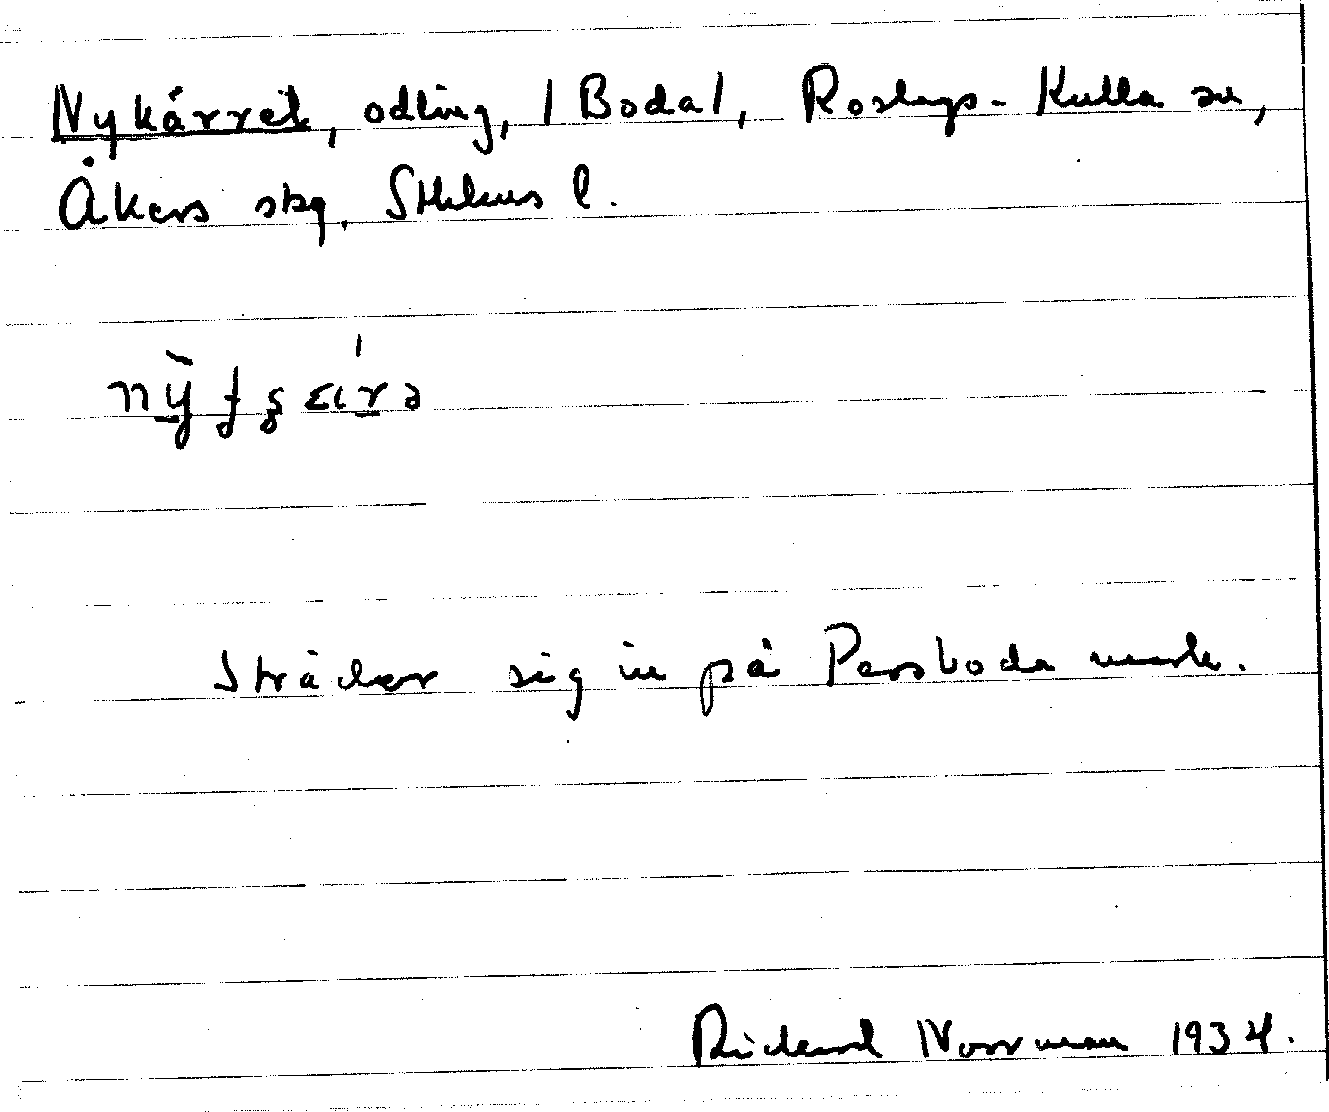 Nykärret, odling, /Boda/, Roslags-Kulla sn,
Åkers skg, Sthlms l.
Sträcker sig in på Persboda mark.
Rickard Norrman 1934.